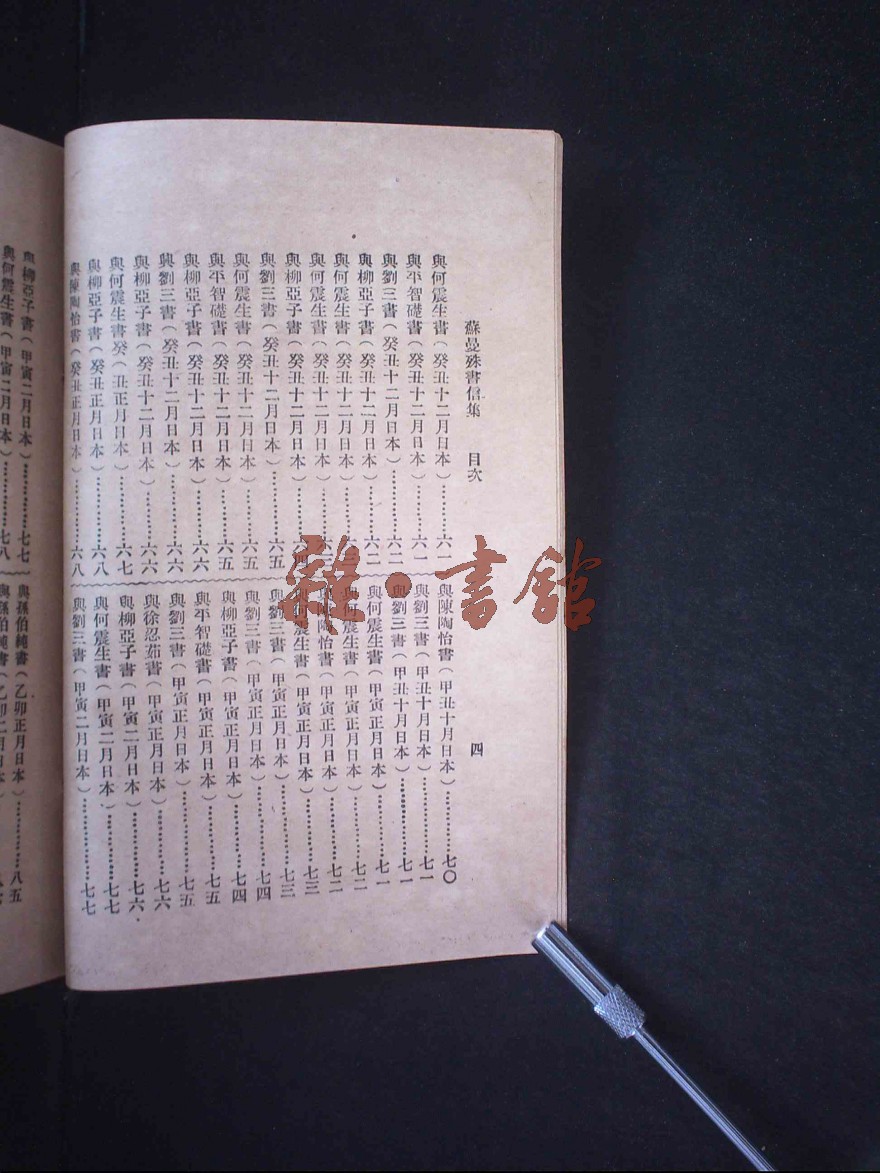 蘇曼殊書信集 目次 四
與何震生書(癸丑十二月日本)…………六一
與平智礎書(癸丑十二月日本)…………六一
與劉三書(癸丑十二月日本)…………六二
與柳亞子書(癸丑十二月日本)…………六二
與何震生書(癸丑十二月日本)…………
與何震生書(癸丑十二月日本)…………
與柳亞子書(癸丑十二月日本)…………六四
與劉三書(癸丑十二月日本)…………六五
與何震生書(癸丑十二月日本)…………六五
與平智礎書(癸丑十二月日本)…………六五
與柳亞子書(癸丑十二月日本)…………六六
與劉三書(癸丑十二月日本)…………六六
與柳亞子書(癸丑十二月日本)…………六六
與何震生書癸(丑正月日本)…………六七
與柳亞子書(癸丑正月日本)…………六八
與陳陶怡書(癸丑正月日本)…………六八
與陳陶怡書(甲丑十月日本)…………七〇
與劉三書(甲丑十月日本)…………七一
與劉三書(甲丑十月日本)…………七一
與何震生書(甲寅正月日本)…………七一
與何震生書(甲寅正月日本)…………七二
與陳陶怡書(甲寅正月日本)…………七二
與何震生書(甲寅正月日本)…………七三
與劉三書(甲寅正月日本)…………七三
與劉三書(甲寅正月日本)…………七四
與柳亞子書(甲寅正月日本)…………七四
與平智礎書(甲寅正月日本)…………七五
與劉三書(甲寅正月日本)…………七五
與徐忍茹書(甲寅正月日本)…………七六
與柳亞子書(甲寅二月日本)…………七六
與何震生書(甲寅二月日本)…………七七
與劉三書(甲寅二月日本)…………七七
與柳亞子書(甲寅二月日本)…………七七
與何震生書(甲寅二月日本)…………七八
與孫伯純書(乙卯正月日本)…………八五
與孫伯純書(乙卯二月日本
雜·書館